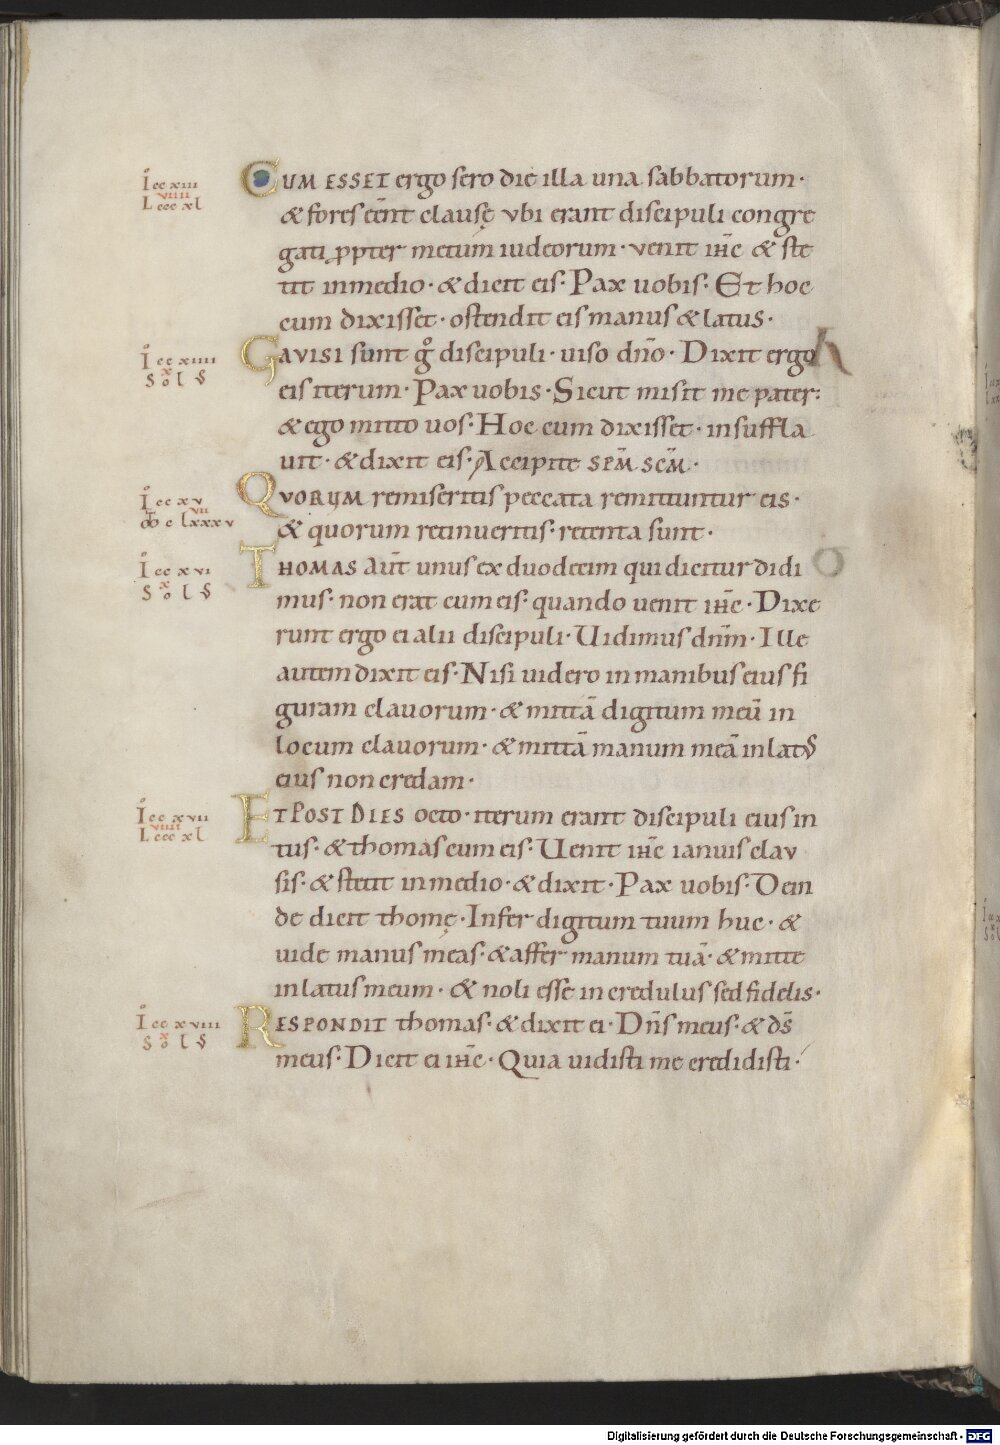 Io cc xiii
viiii
L ccc xl
CUM ESSET ergo sero die illa una sabbatorum·
& fores eēnt clausę vbi erant discipuli congre
gati ꝓpter metum iudeorum· venit ihc̄ & ste
tit inmedio· & dicit eis· Pax uobis· Et hoc
cum dixisset· ostendit eis manus & latus·
Io cc xiiii
x
Solus
GAVISI sunt gͦ discipuli· uiso dnō· Dixit ergo
eis iterum· Pax uobis· Sicut misit me pater:
& ego mitto uos· Hoc cum dixisset· insuffla
uit· & dixit eis· Accipite SPM̄ SCM̄·
Io cc xv
vii
M c lxxxv
QVORUM remiseritis peccata remittuntur eis·
& quorum retinueritis· retenta sunt·
Io cc xvi
x
Solus
THOMAS aūt unus ex duodecim qui dicitur didi
mus· non erat cum eis· quando uenit ihc̄· Dixe
runt ergo ei alii discipuli· Uidimus dnm̄· Ille
autem dixit eis· Nisi uidero in manibus eius fi
guram clauorum· & mittā digitum meū in
locum clauorum· & mittā manum meā in latus
eius non credam·
Io cc xvii
viiii
L ccc xl
ET POST DIES octo· iterum erant discipuli eius in
tus· & thomas cum eis· Uenit ihc̄ ianuis clav
sis· & stetit in medio· & dixit· Pax uobis· Dein
de dicit thomę· Infer digitum tuum huc· &
uide manus meas· & affer manum tuā· & mitte
in latus meum· & noli esse incredulus sed fidelis·
Io cc xviii
x
Solus
RESPONDIT thomas· & dixit ei· Dns̄ meus· & ds̄
meus· Dicit ei ihc̄· Quia uidisti me credidisti·
Digitalisierung gefördert durch die Deutsche Forschungsgemeinschaft - DFG